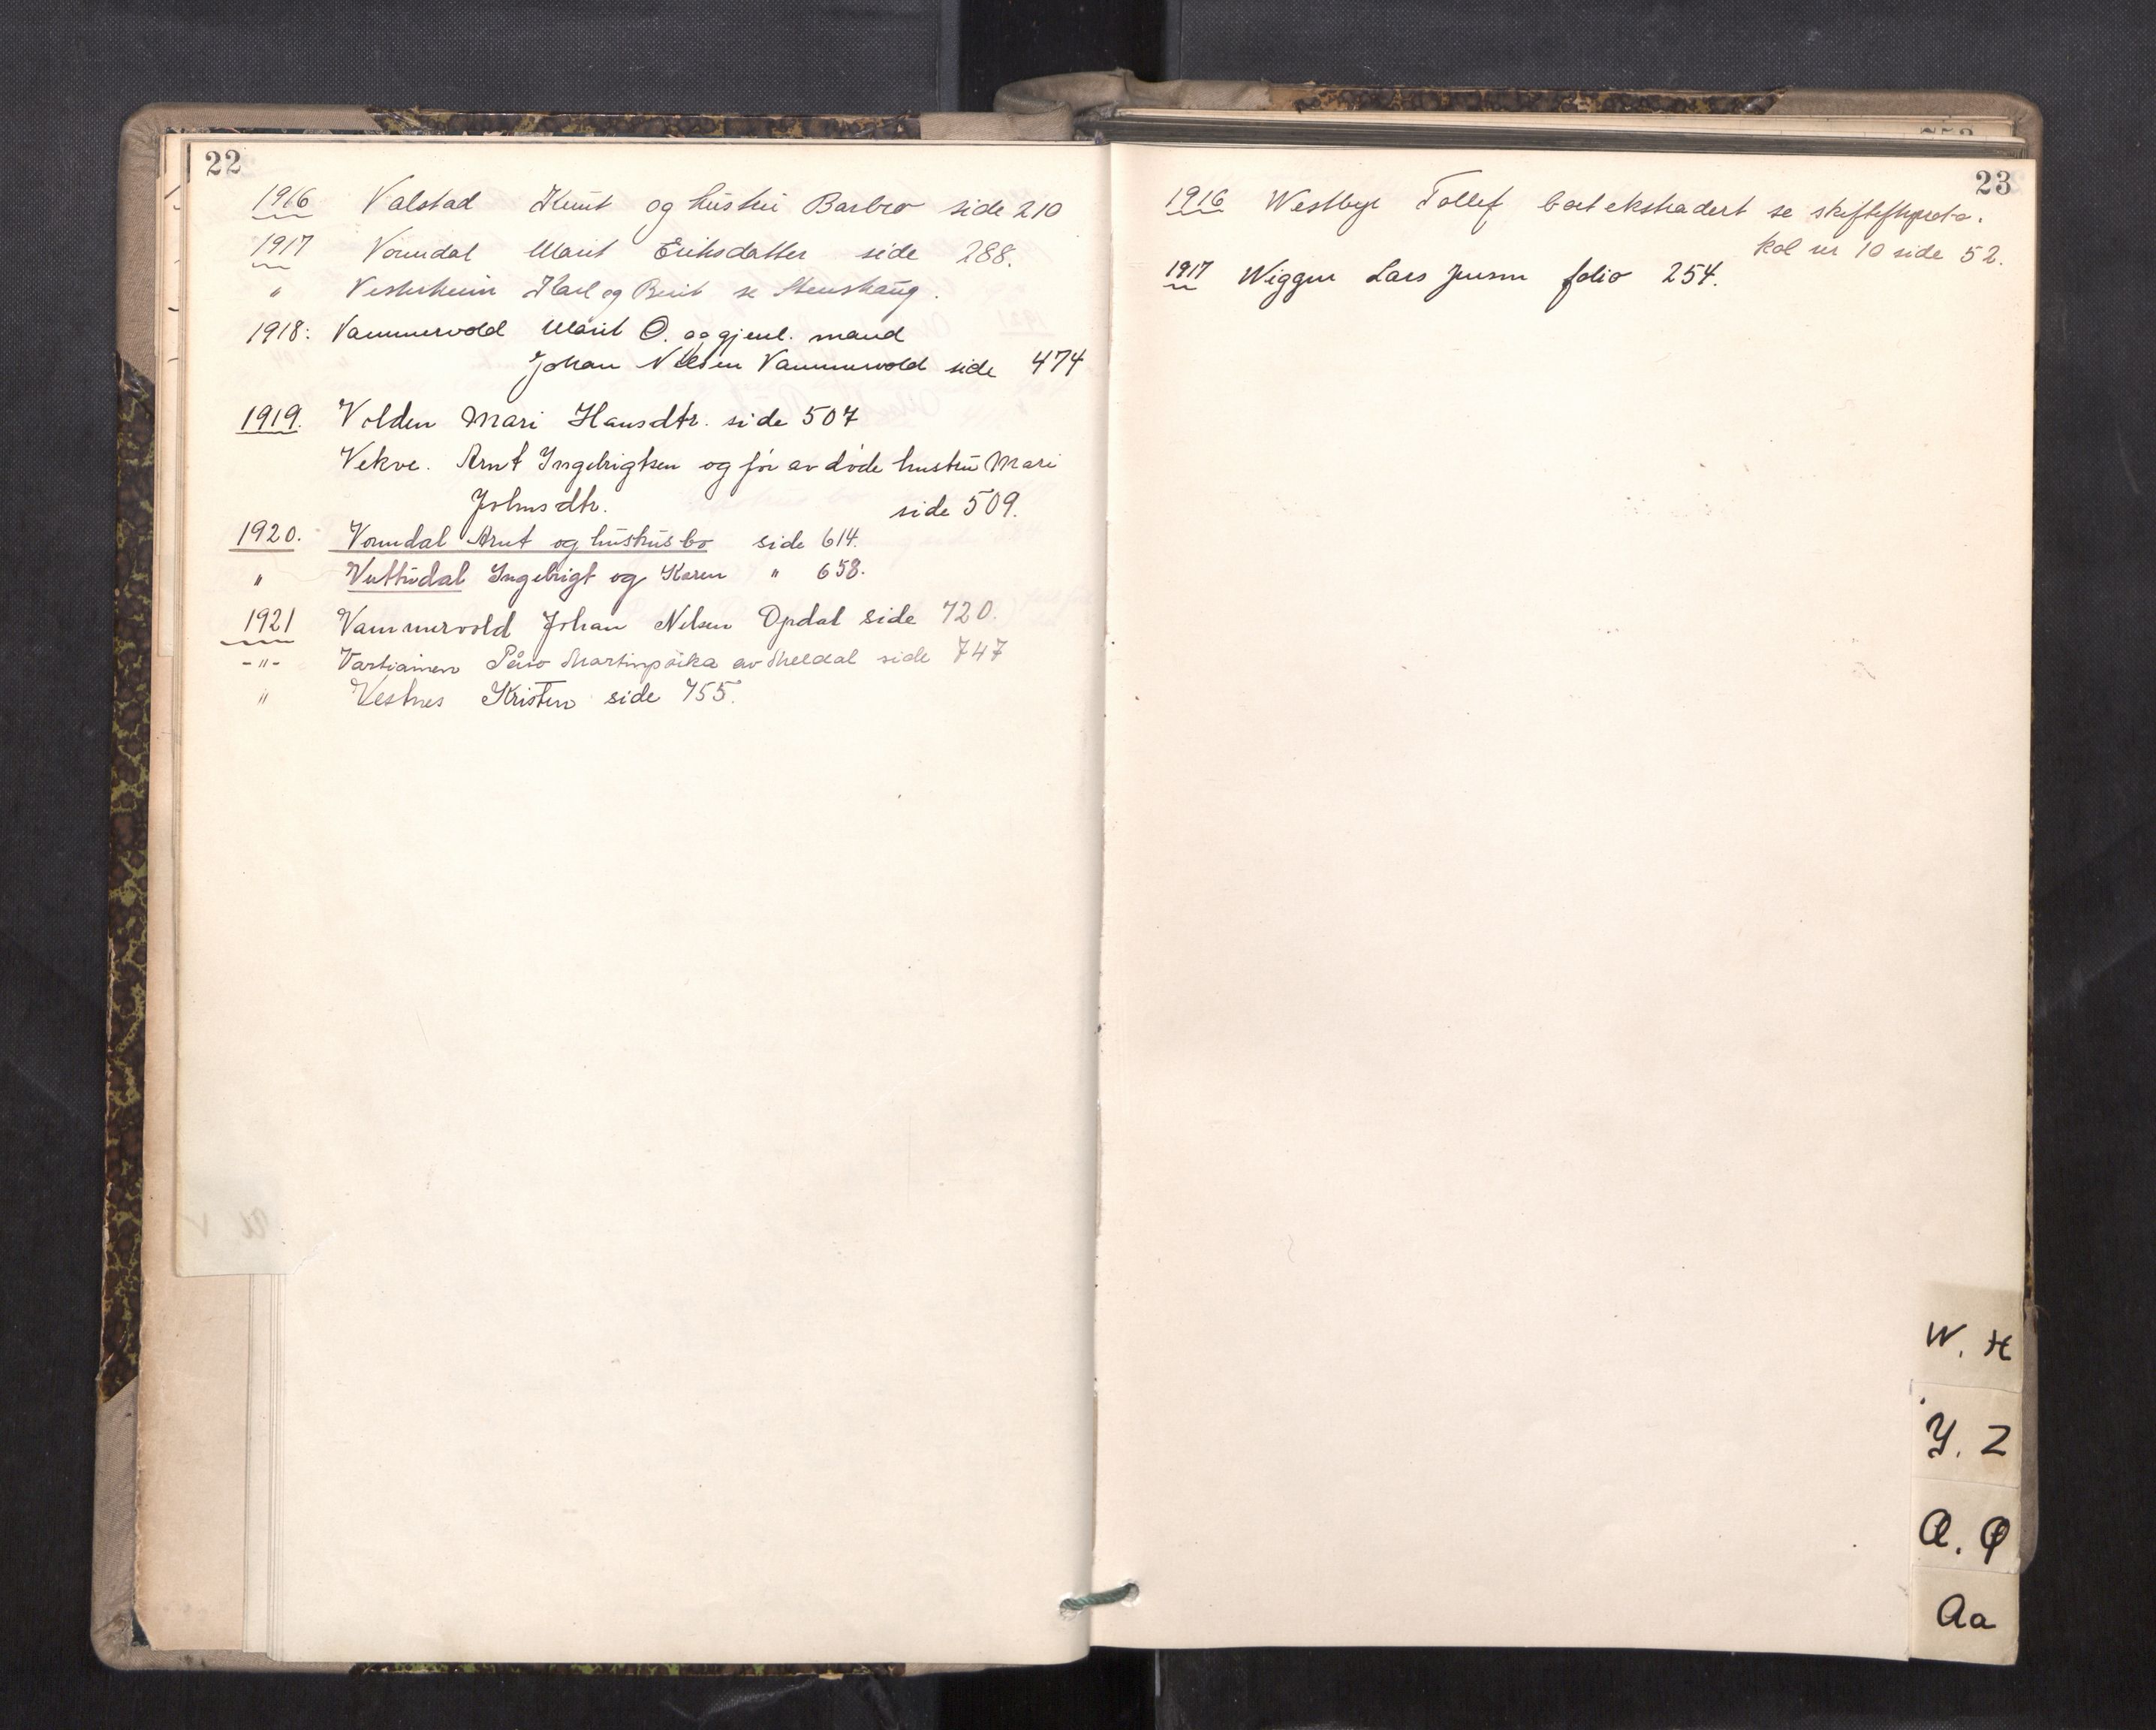 22
1916 Valstad Knut og hustru Barbro side 210
1917 Vorndal Marit Eriksdatter side 288.
" Vesterheim Karl og Berit se Stenshaug.
1918: Vammervold Marit O. og gjenl. mand
Johan Nilsen Vammervold side 474
1919. Volden Mari Hansdtr. side 507
Vekve. Arnt Ingebrigtsen og før avdøde hustru Mari
Johnsdtr. side 509.
1920. Vorndal Arnt og hustrus bo side 614.
" Vuttudal Ingebrigt og Karen " 658.
1921 Vammervold Johan Nilsen Opdal side 720.
-"- Vartiainen Påvo Martinpoika av Meldal side 747
" Vestnes Kristen side 755.
23
1916 Westbye Tollef boet ekstradert se
kol nr 10 side 52.
1917 Wiggen Lars Jensen folio 254.
W. X
Y. Z
Æ. Ø
Aa